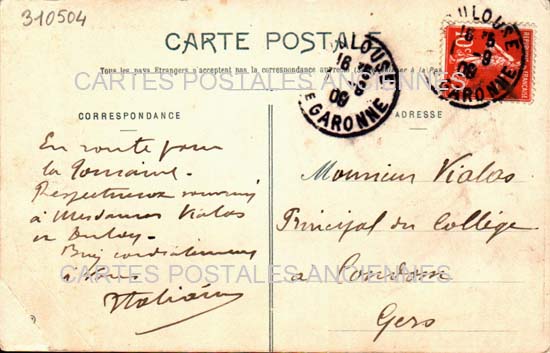 310504
CARTE POSTALE
Tous les pays Etrangers n'acceptent pas la correspondance au
TOULOUSE
16 35
9
09
GARONNE
TOULOUSE
16 35
9
09
GARONNE
CARTES POSTALES ANCIENNES
CORRESPONDANCE
ADRESSE
En route pour
la
Respectueux
à Mesdames Vialas
Bien cordialement
à vous
Monsieur Vialas
Principal du Collège
à Condom
Gers
CARTES POSTALES ANCIENNES